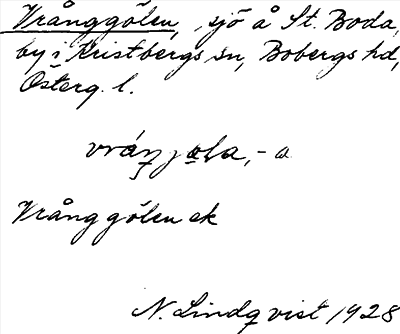 Vrånggölen, sjö å St. Boda,
by i Kristbergs sn, Bobergs hd,
Österg. l.
vráŋjola, -a
Vrånggölen ek
N. Lindqvist 1928